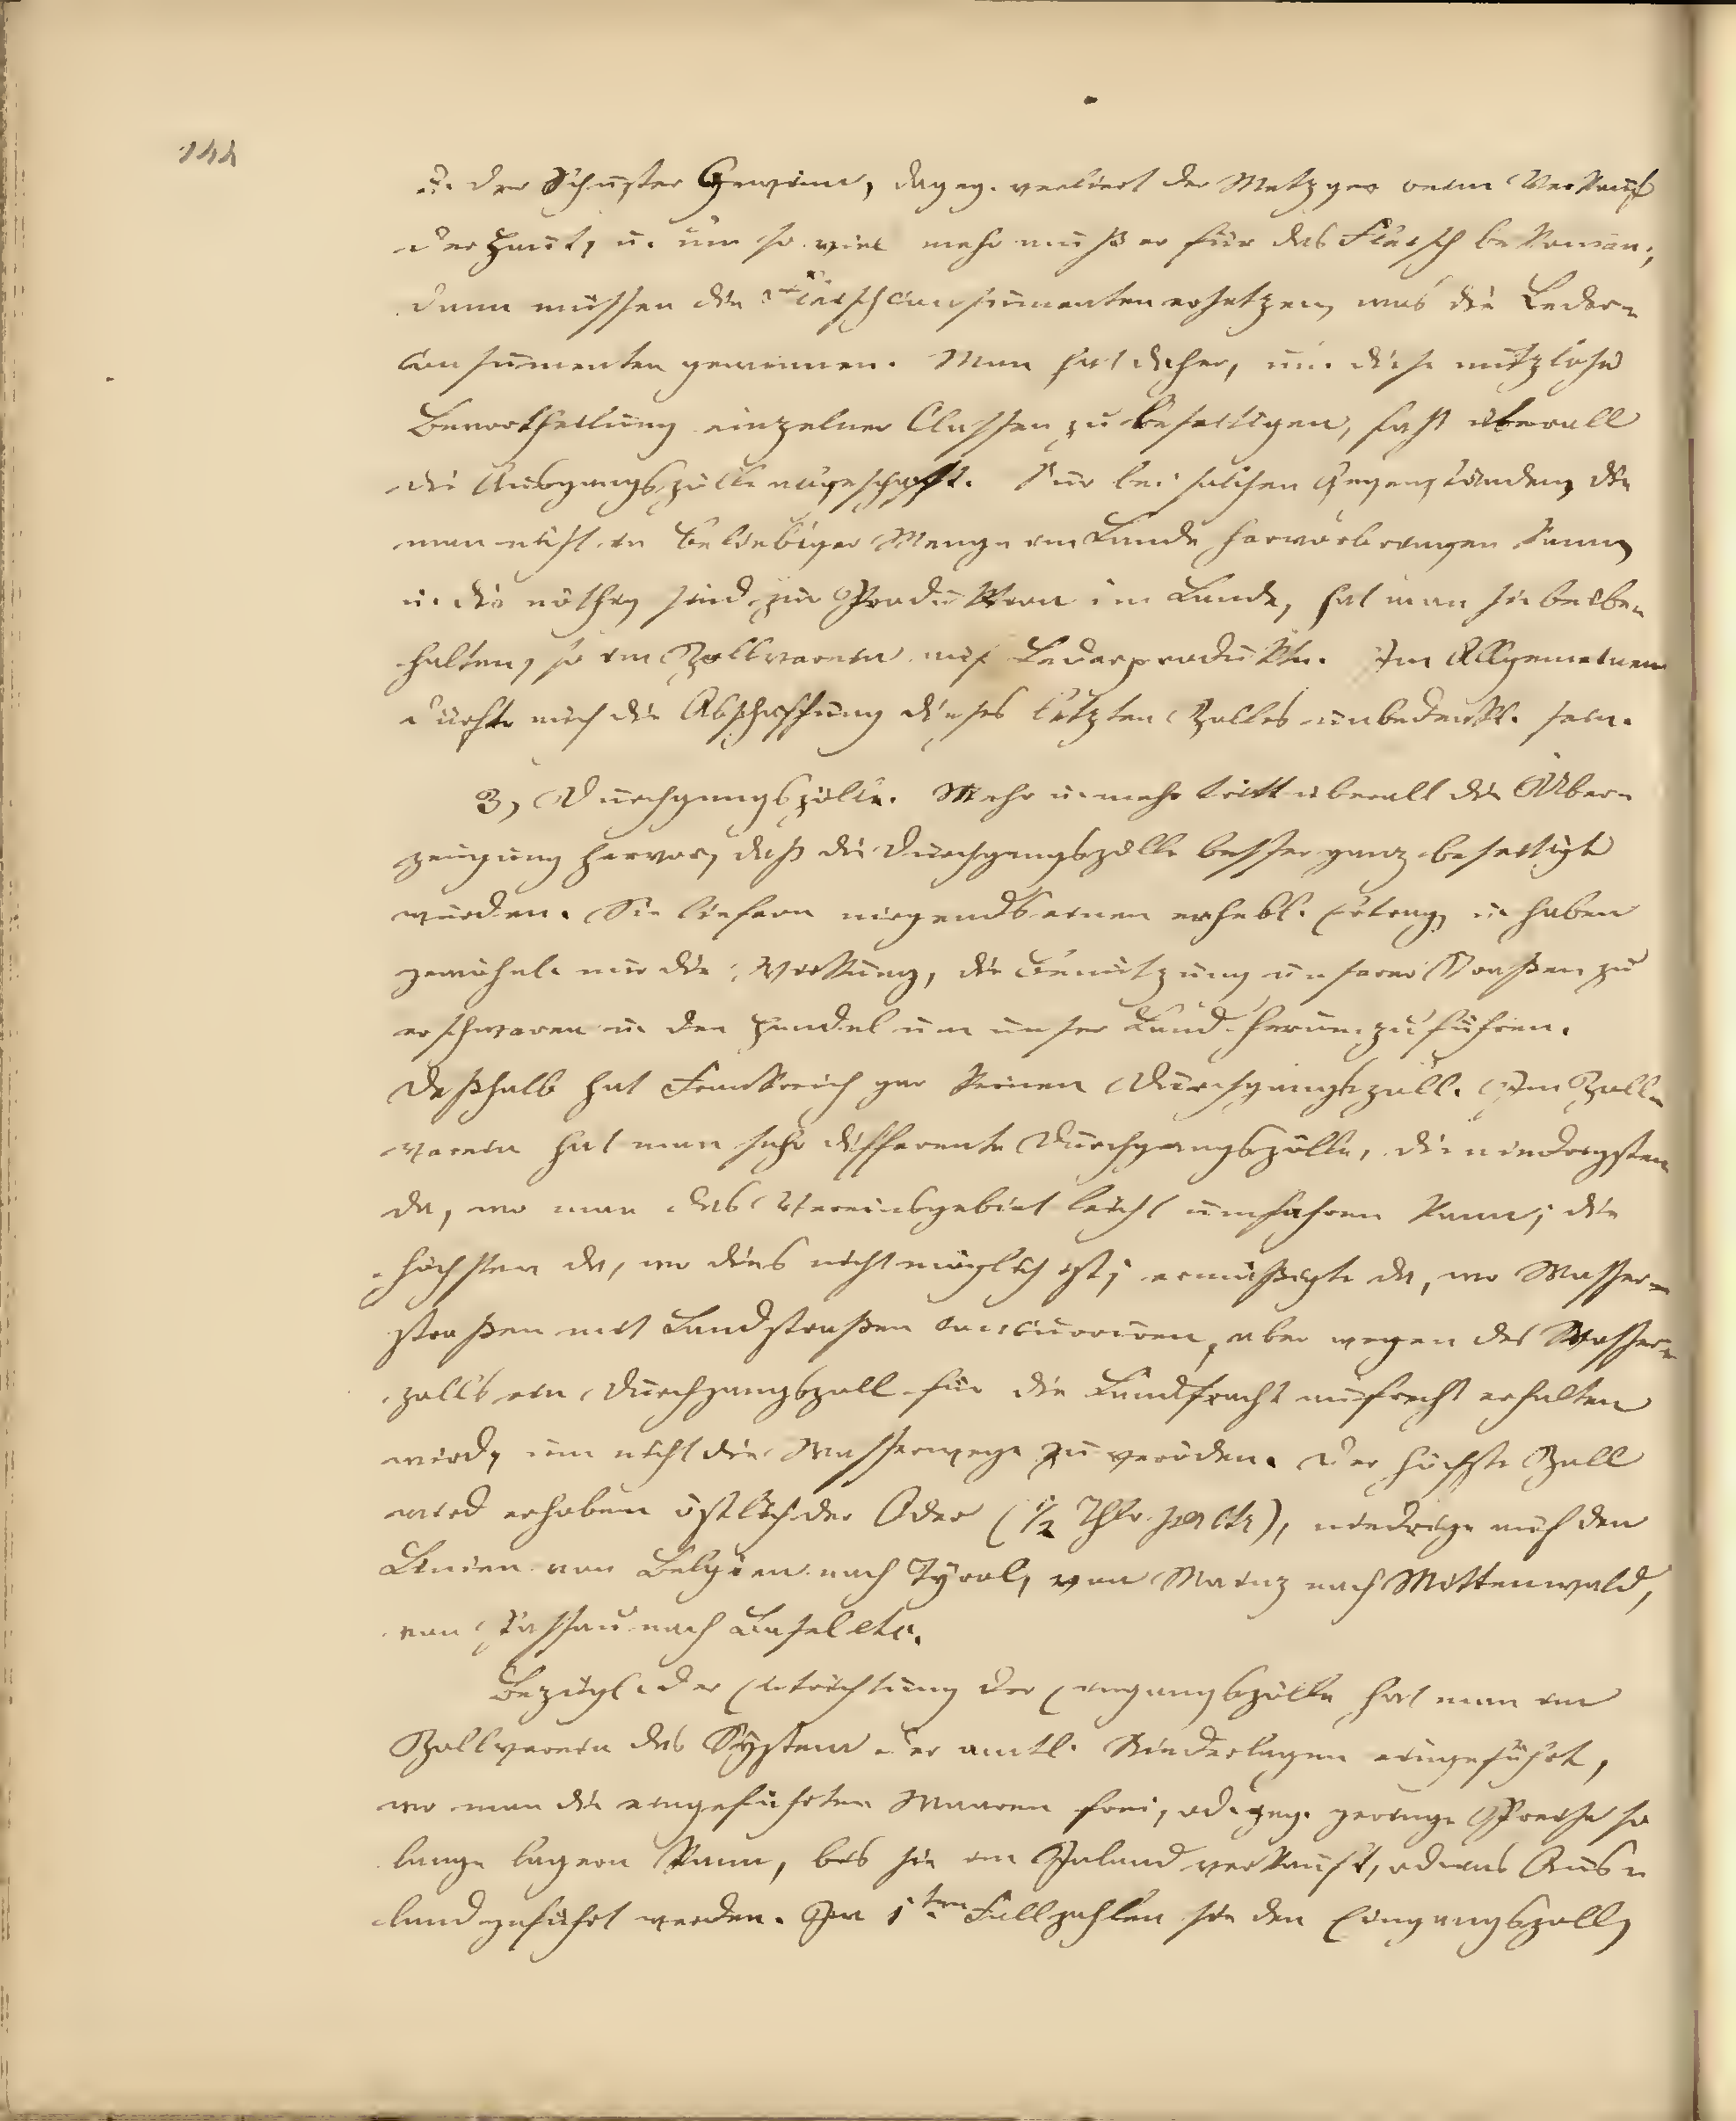 144
u. der Schuster Gewinn, dageg. verliert der Metzger beim Verkauf
der Haut, u. um so viel mehr muß er für das Fleisch bekommen;
dann müssen die Fleischconsumenten ersetzen, was die Leder-
consumenten gewinnen. Man hat daher, um diese nutzlose
Bevortheilung einzelner Classen zu beseitigen, fast überall
die Ausgangszölle abgeschafft. Nur bei solchen Gegenständen, die
man nicht in beliebiger Menge im Lande hervorbringen kann,
u. die nöthig sind zur Produktion im Lande, hat man sie beibe-
halten, so im Zollverein auf Lederprodukte. Im Allgemeinen
dürfte auch die Abschaffung dieses letzten Zolles unbedenkl. sein.
3, Durchgangszölle. Mehr u. mehr tritt überall die Über-
zeugung hervor, daß die Durchgangszölle besser ganz beseitigt
würden. Sie liefern nirgends einen erhebl. Ertrag, u. haben
gewöhnl. nur die Wirkung, die Benützung unserer Straßen zu
erschweren u. den Handel um unser Land herumzuführen.
Deßhalb hat Frankreich gar keinen Durchgangszoll. Im Zoll-
verein hat man sehr differente Durchgangszölle, die niedrigsten
da, wo man das Vereinsgebiet leicht umfahren kann; die
höchsten da, wo dies nicht möglich ist; ermäßigte da, wo Wasser-
straßen mit Landstraßen concurriren, aber wegen des Wasser-
zolls ein Durchgangszoll für die Landfracht aufrecht erhalten
wird, um nicht die Wasserwege zu veröden. Der höchste Zoll
wird erhoben östlich der Oder (1/2 Thlr. per Ctr), niedrige auf den
Linien von Belgien nach Tyrol, von Mainz nach Mittenwald,
von Passau nach Basel etc.
Bezügl. der Entrichtung der Eingangszölle hat man im
Zollverein das System der amtl. Niederlagen eingeführt,
wo man die eingeführten Waaren frei, od. geg. geringe Preise so
lange lagern kann, bis sie im Inland verkauft, od. ins Aus-
land geführt werden. Im 1ten Fall zahlen sie den Eingangszoll,